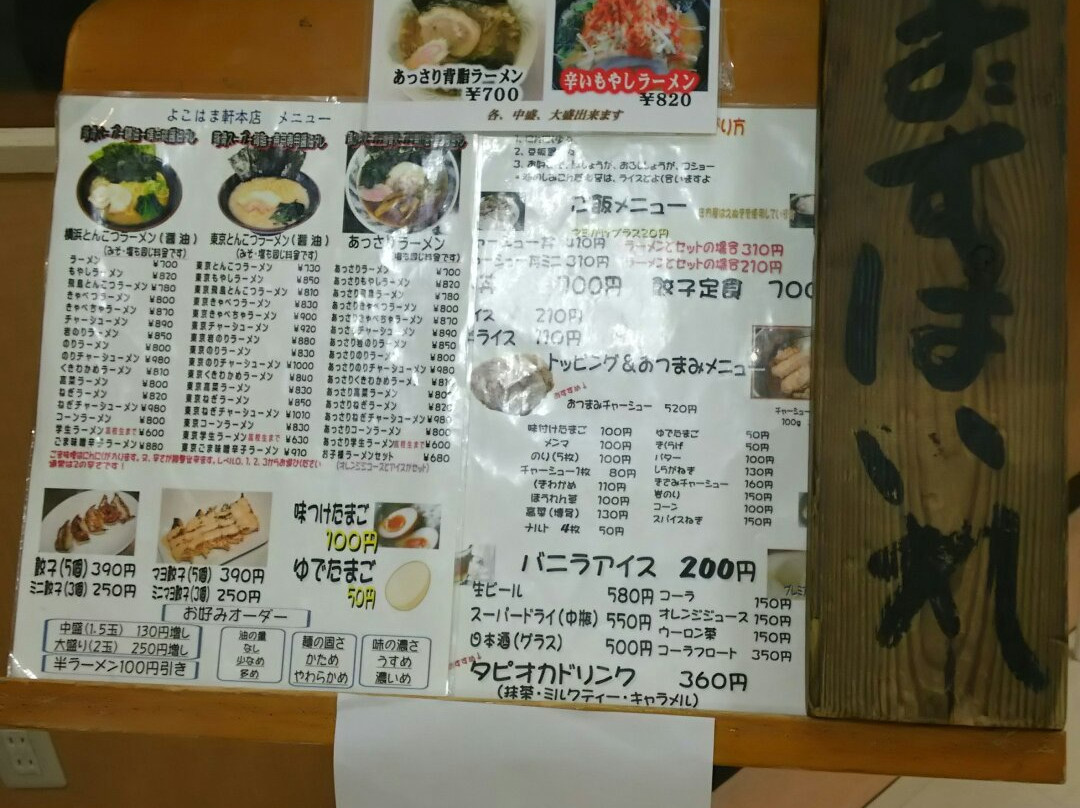 あっさり背脂ラーメン
¥700
辛いもやしラーメン
¥820
各、中盛、大盛出来ます
よこはま軒本店 メニュー
横浜とんこつラーメン(醤油)
(みそ・塩も同じ料金です)
ラーメン ¥700
もやしラーメン ¥820
飛島とんこつラーメン ¥780
きゃべつラーメン ¥800
きゃべちゃラーメン ¥870
チャーシューメン ¥890
岩のりラーメン ¥850
のりラーメン ¥800
のりチャーシューメン ¥980
くきわかめラーメン ¥810
高菜ラーメン ¥800
ねぎラーメン ¥820
ねぎチャーシューメン ¥980
コーンラーメン ¥800
学生ラーメン 高校生まで ¥600
ごま味噌辛子ラーメン ¥880
東京とんこつラーメン(醤油)
(みそ・塩も同じ料金です)
東京とんこつラーメン ¥730
東京もやしラーメン ¥850
東京飛島とんこつラーメン ¥810
東京きゃべつラーメン ¥830
東京きゃべちゃラーメン ¥900
東京チャーシューメン ¥920
東京岩のりラーメン ¥880
東京のりラーメン ¥830
東京のりチャーシューメン ¥1000
東京くきわかめラーメン ¥840
東京高菜ラーメン ¥830
東京ねぎラーメン ¥850
東京ねぎチャーシューメン ¥1010
東京コーンラーメン ¥830
東京学生ラーメン 高校生まで ¥630
東京ごま味噌辛子ラーメン ¥910
あっさりラーメン
あっさりラーメン ¥700
あっさりもやしラーメン ¥820
あっさり飛島ラーメン ¥780
あっさりきゃべつラーメン ¥800
あっさりきゃべちゃラーメン ¥870
あっさりチャーシューメン ¥890
あっさり岩のりラーメン ¥850
あっさりのりラーメン ¥800
あっさりのりチャーシューメン ¥980
あっさりくきわかめラーメン ¥810
あっさり高菜ラーメン ¥800
あっさりねぎラーメン ¥820
あっさりねぎチャーシューメン ¥980
あっさりコーンラーメン ¥800
あっさり学生ラーメン 高校生まで ¥600
お子様ラーメンセット ¥680
(オレンジジュースとアイスがセット)
ごま味噌はにんにくが入ります。又、辛さが調整出来ます。レベル0、1、2、3からお選びください
通常は2の辛さです!
餃子(5個)390円
ミニ餃子(3個)250円
マヨ餃子(5個)390円
ミニマヨ餃子(3個)250円
味つけたまご
100円
ゆでたまご
50円
お好みオーダー
中盛(1.5玉) 130円増し
大盛り(2玉) 250円増し
半ラーメン100円引き
油の量
なし
少なめ
多め
麺の固さ
かため
やわらかめ
味の濃さ
うすめ
濃いめ
ご飯メニュー
410円 ラーメンとセットの場合310円
丼ミニ310円 ラーメンとセットの場合210円
700円 餃子定食
210円
ライス 110円
トッピング&おつまみメニュー
おすすめ!
おつまみチャーシュー 520円
チャーシュー
100g
味付けたまご 100円
メンマ 100円
のり(5枚) 100円
チャーシュー1枚 80円
くきわかめ 110円
ほうれん草 100円
高菜(博多) 130円
ナルト 4枚 50円
ゆでたまご 50円
きくらげ 50円
バター 100円
しらがねぎ 130円
きざみチャーシュー 160円
岩のり 150円
コーン 100円
スパイスねぎ 150円
バニラアイス 200円
生ビール 580円
スーパードライ(中瓶) 550円
日本酒(グラス) 500円
コーラ 150円
オレンジジュース 150円
ウーロン茶 150円
コーラフロート 350円
おすすめ!
タピオカドリンク 360円
(抹茶・ミルクティー・キャラメル)